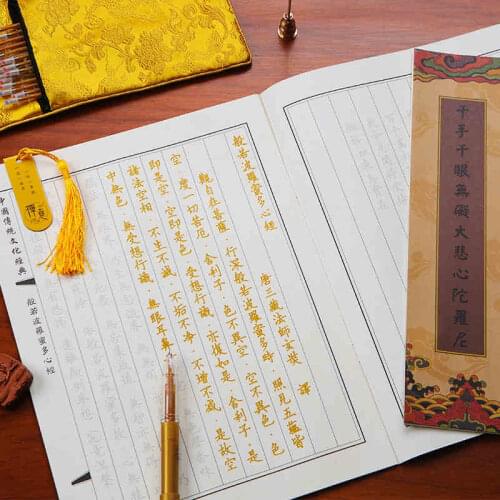 千手千眼無礙大悲心陀羅尼
般若波羅蜜多心經
唐三藏法師玄奘 譯
觀自在菩薩．行深般若波羅蜜多時．照見五蘊皆
空．度一切苦厄．舍利子．色不異空．空不異色．色
即是空．空即是色．受想行識．亦復如是．舍利子．是
諸法空相．不生不滅．不垢不淨．不增不減．是故空
中無色．無受想行識．無眼耳鼻
中國傳統文化經典
般若波羅蜜多心經